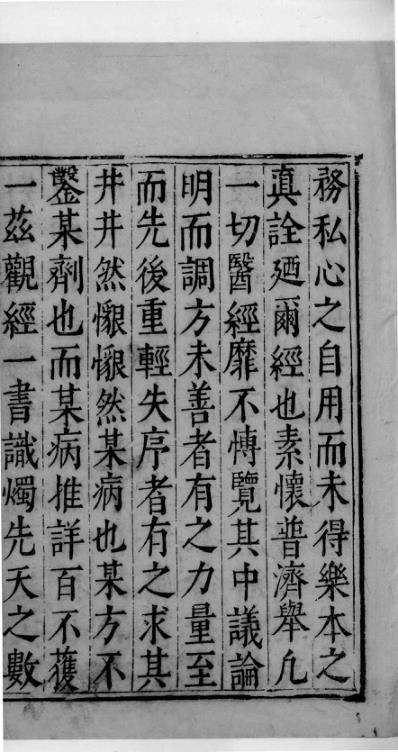 務私心之自用而未得樂本之
真詮迺爾經也素懷普濟舉凢
一切醫經靡不愽覽其中議論
明而調方未善者有之力量至
而先後重輕失序者有之求其
井井然懇懇然某病也某方不
鑿某劑也而某病推詳百不獲
一茲觀經一書識燭先天之數